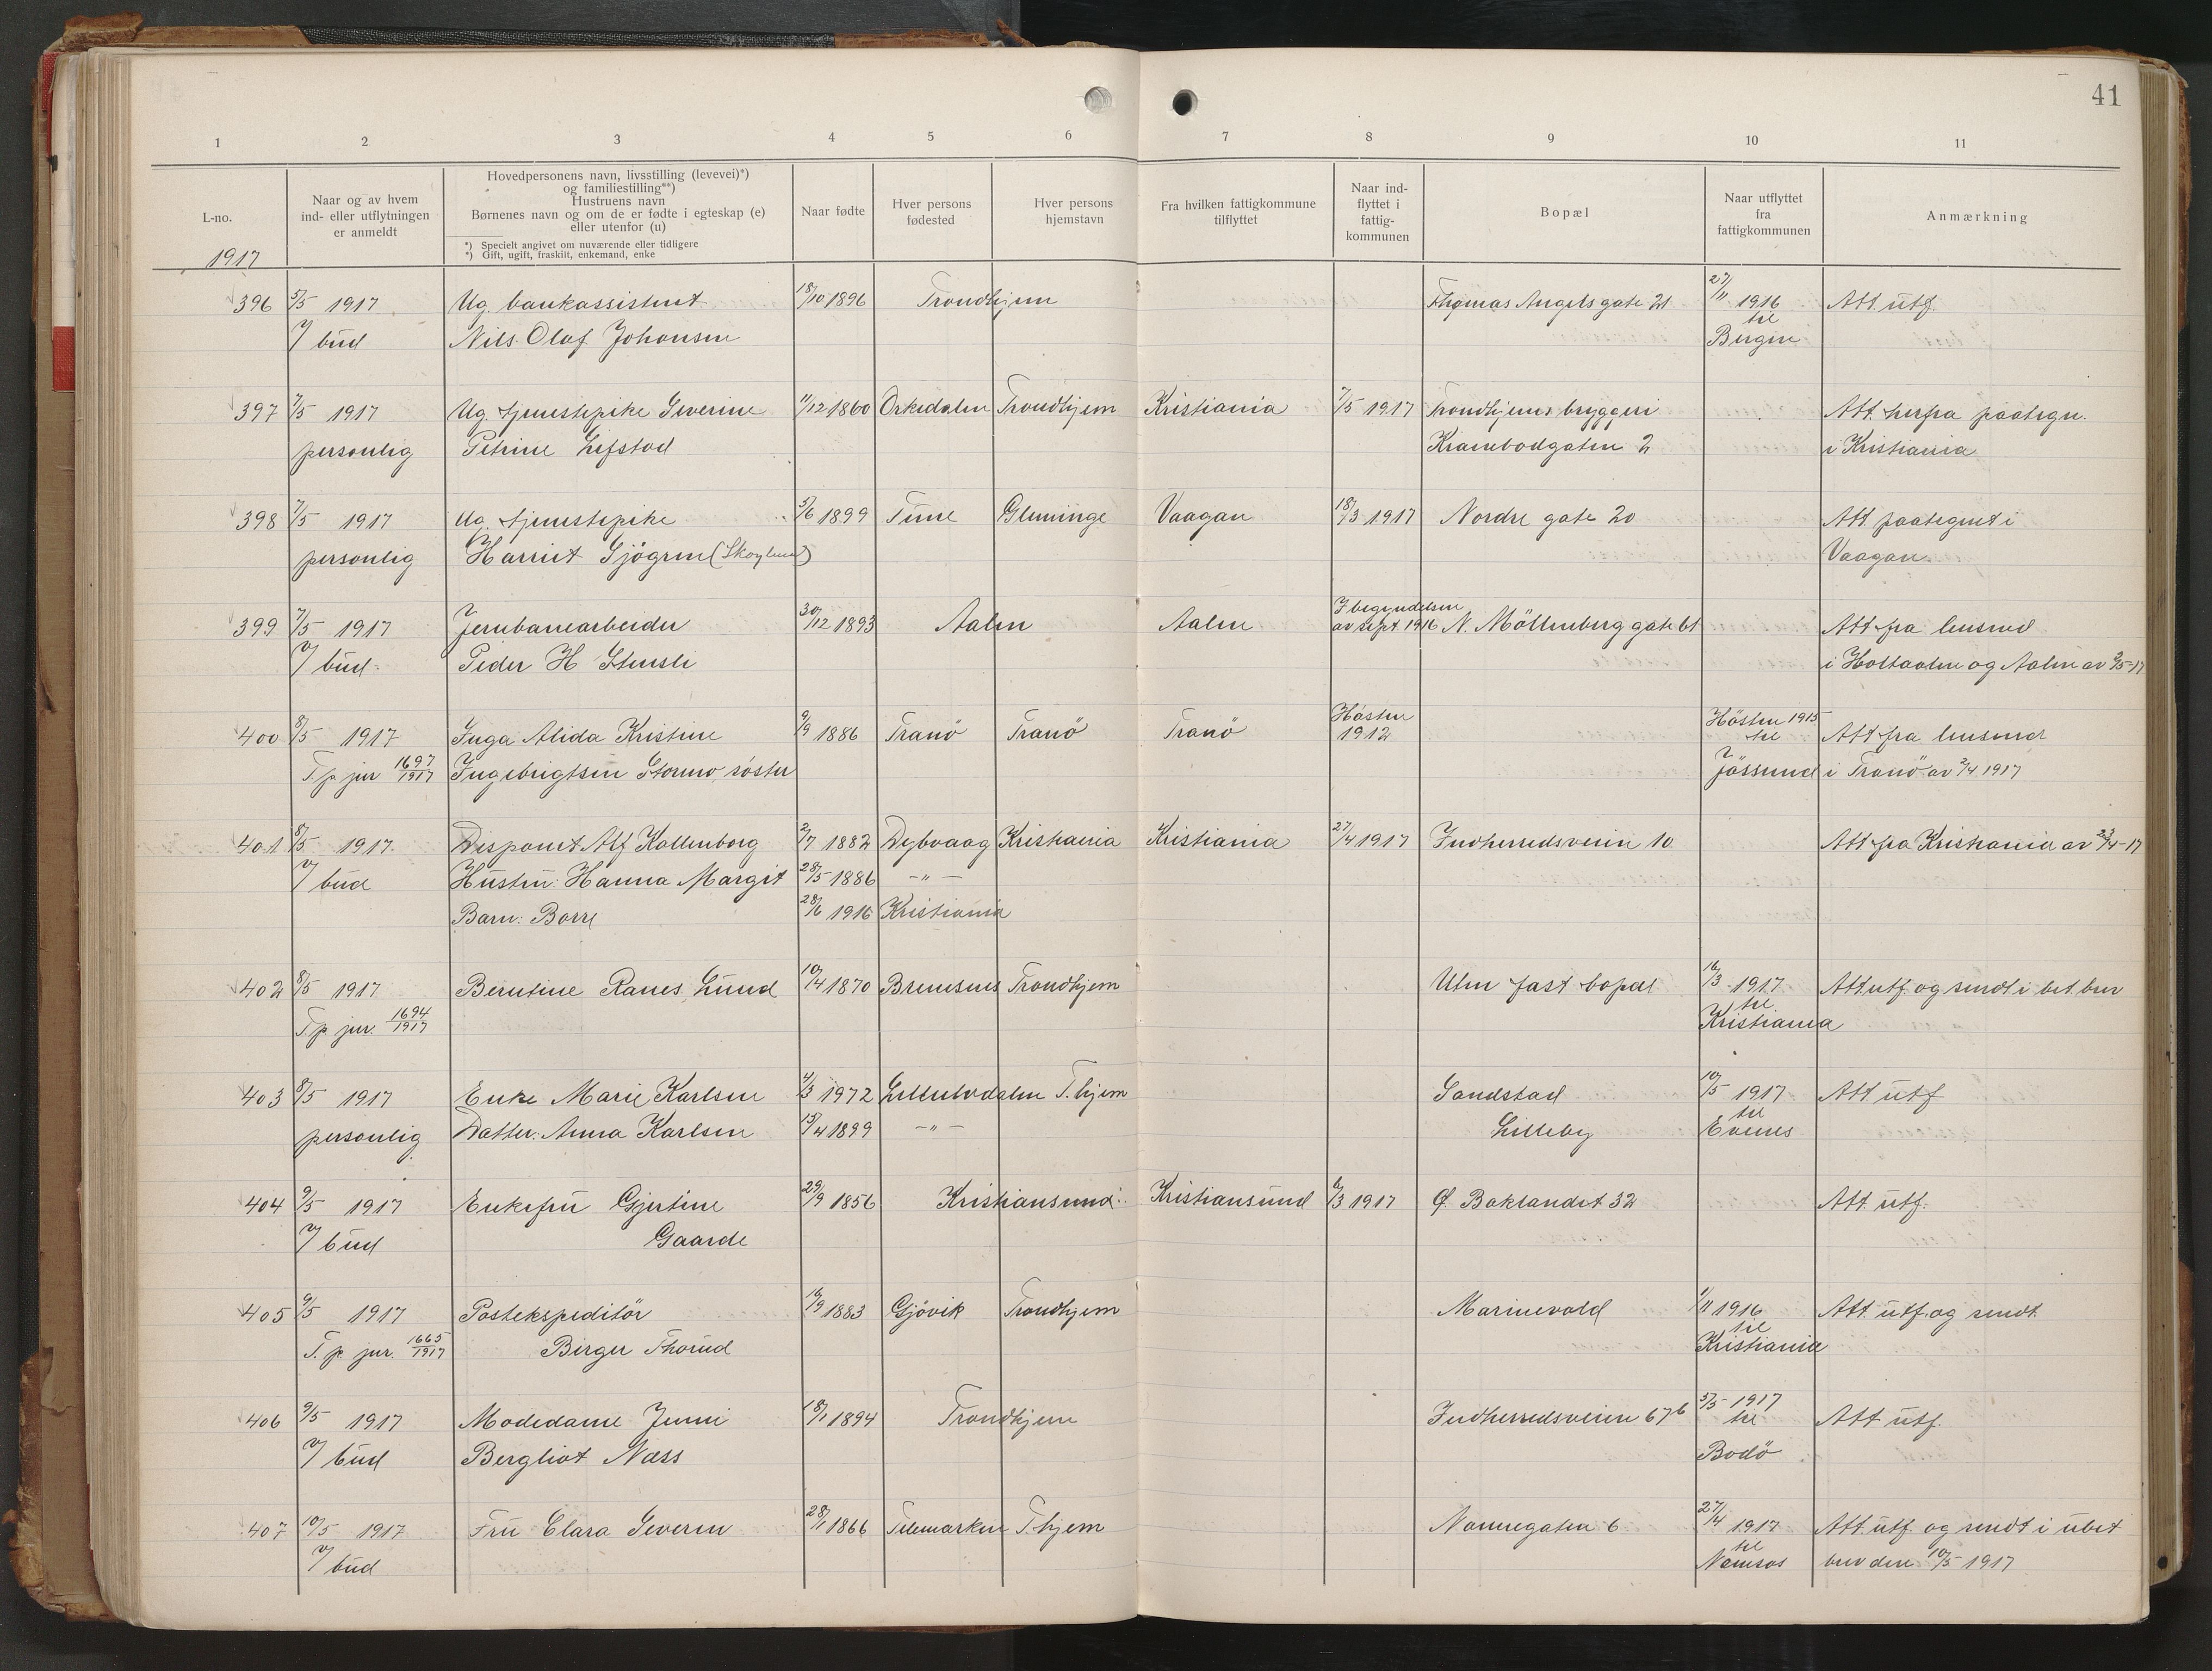 41
1 2 3 4 5 6 7 8 9 10 11
L-no.
1917
Naar og av hvem
ind- eller utflytningen
er anmeldt
Hovedpersonens navn, livsstilling (levevei)*)
og familiestilling**)
Hustruens navn
Børnenes navn og om de er fødte i egteskap (e)
eller utenfor (u)
*) Specielt angivet om nuværende eller tidligere
*) Gift, ugift, fraskilt, enkemand, enke
Naar fødte
Hver persons
fødested
Hver persons
hjemstavn
Fra hvilken fattigkommune
tilflyttet
Naar ind-
flyttet i
fattig-
kommunen
Bopæl
Naar utflyttet
fra
fattigkommunen
Anmærkning
396 5/5 1917 Ug. bankassistent 18/10 1896 Trondhjem Thomas Angels gate 21 27/11 1916 Att. utf.
til
v/ bud Nils Olaf Johansen Bergen
397 7/5 1917 Ug. tjenestepike Severine 11/12 1860 Orkedalen Trondhjem Kristiania 7/5 1917 Trondhjems bryggeri Att. herfra paategn.
personlig Petrine Lefstad Krambodgaten 2 i Kristiania
398 7/5 1917 Ug. tjenestepike 5/6 1899 Tune Glemminge Vaagan 18/3 1917 Nordre gate 20 Att paategnet i
personlig Harriet Sjögren Vaagan
I begyndelsen
399 7/5 1917 Jernbanearbeider 30/12 1893 Aalen Aalen av sept. 1916 N. Möllenberg gate 61 Att fra lensmd
v/ bud Peder H Stensli i Holtaalen og Aalen av 3/5-17
Hösten Hösten 1915
400 8/5 1917 Inga Alida Kristine 9/9 1886 Tranö Tranö Tranö 1912 til Att fra lensmd
T. p. jur 1697/1917 Ingebrigtsen Stormo, söster Jössund i Tranö av 2/4 1917
401 8/5 1917 Disponent Alf Kallenborg 2/7 1882 Dybvaag Kristiania Kristiania 27/4 1917 Indherredsveien 10 Att fra Kristiania av 23/4-17
v/ bud Hustru: Hanna Margit 28/5 1886 -"-
Barn: Borre 28/6 1916 Kristiania
402 8/5 1917 Berntine Ranes Lund 10/4 1870 Bremsnes Trondhjem Uten fast bopæl 16/3 1917 Att. utf. og sendt i bet. brev
til
T. p. jur. 1694/1917 Kristiania
403 8/5 1917 Enke Marie Karlsen 4/3 1972 Lilleelvdalen T.hjem Sandstad 10/5 1917 Att utf
til
personlig Datter: Anna Karlsen 15/4 1899 -"- Lilleby Evenes
404 9/5 1917 Enkefru Gjertine 29/9 1856 Kristiansund Kristiansund 6/3 1917 Ø. Baklandet 32 Att. utf.
v/ bud Gaarde
405 9/5 1917 Postekspeditör 16/9 1883 Gjövik Trondhjem Marinevold 1/11 1916 Att. utf. og sendt.
til
T. p. jur. 1665/1917 Birger Thorud Kristiania
406 9/5 1917 Modedame Jenni 18/1 1894 Trondhjem Indherredsveien 67b 5/5 1917 Att utf.
til
v/ bud Bergliot Næss Bodö
407 10/5 1917 Fru Clara Severin 28/1 1866 Telemarken T.hjem Nonnegaten 6 27/4 1917 Att. utf. og sendt i ubet
til
v/ bud Namsos brev den 10/5 1917